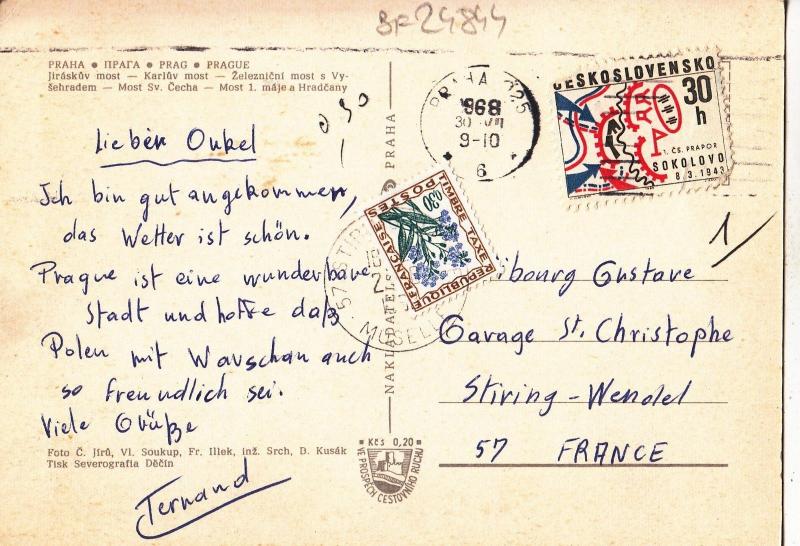 BF24844
PRAHA ● ПРАГА ● PRAG ● PRAGUE
Jiráskův most — Karlův most — Železniční most s Vy-
šehradem — Most Sv. Čecha — Most 1. máje a Hradčany
0,30
Lieber Onkel
Ich bin gut angekommen,
das Wetter ist schön.
Prague ist eine wunderbare
Stadt und hoffe daß
Polen mit Warschau auch
so freundlich sei.
Viele Grüße
Fernand
Foto Č. Jírů, Vl. Soukup, Fr. Illek, inž. Srch, D. Kusák
Tisk Severografia Děčín
PRAHA
NAKLADATELS
Kčs 0,20
VE PROSPĚCH CESTOVNÍHO RUCHU
PRAHA 025
968
30 VII
9-10
6
ČESKOSLOVENSKO
30
h
1. ČS. PRAPOR
SOKOLOVO
8.3.1943
TIMBRE TAXE
POSTES
0,30
REPUBLIQUE
FRANÇAISE
57 STIRI
18
2
MOSELLE
1/
ibourg Gustave
Garage St. Christophe
Stiring-Wendel
57 FRANCE